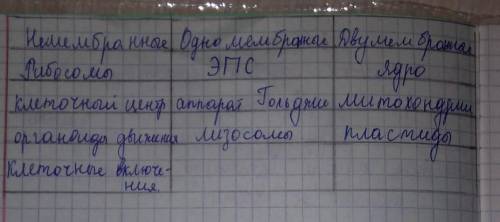 Немембранные Одномембранные Двумембранные
Рибосомы ЭПС ядро
клеточный центр аппарат Гольджи митохондрии
органоиды движения лизосомы пластиды
клеточные включе-
ния.